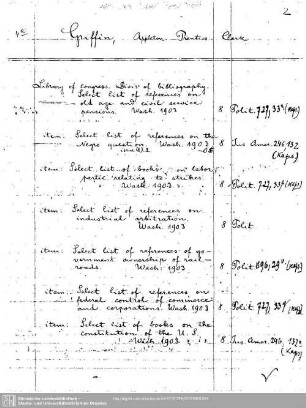 2
Griffin, Appleton Prentiss Clark
Library of Congress. Divis. of bibliography
Select list of references on
old age and civil service
pensions. Wash. 1903 8 Polit. 727, 33
item: Select list of references on the
Negro question. Wash. 1903 8 Jus Amer. 246, 132
(Kaps)
item: Select list of books on labor,
relating to strikes
Wash. 1903 8 Polit. 727, 33
item: Select list of references on
industrial arbitration.
Wash. 1903 8 Polit
item: Select list of references of go-
vernment ownership of rail-
roads. Wash. 1903 8 Polit. 896, 29
item: Select list of references on
federal control of commerce
and corporations. Wash. 1903 8 Polit. 727, 33
item: Select list of books on the
constitution of the U. S.
Wash. 1903 8 Jus Amer. 246, 132
(Kaps)